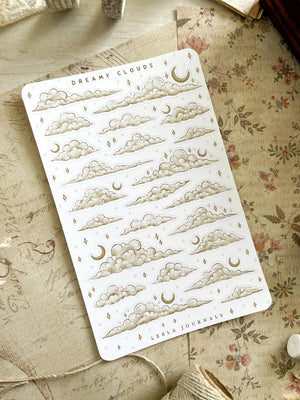 DREAMY CLOUDS
LEELA JOURNALS